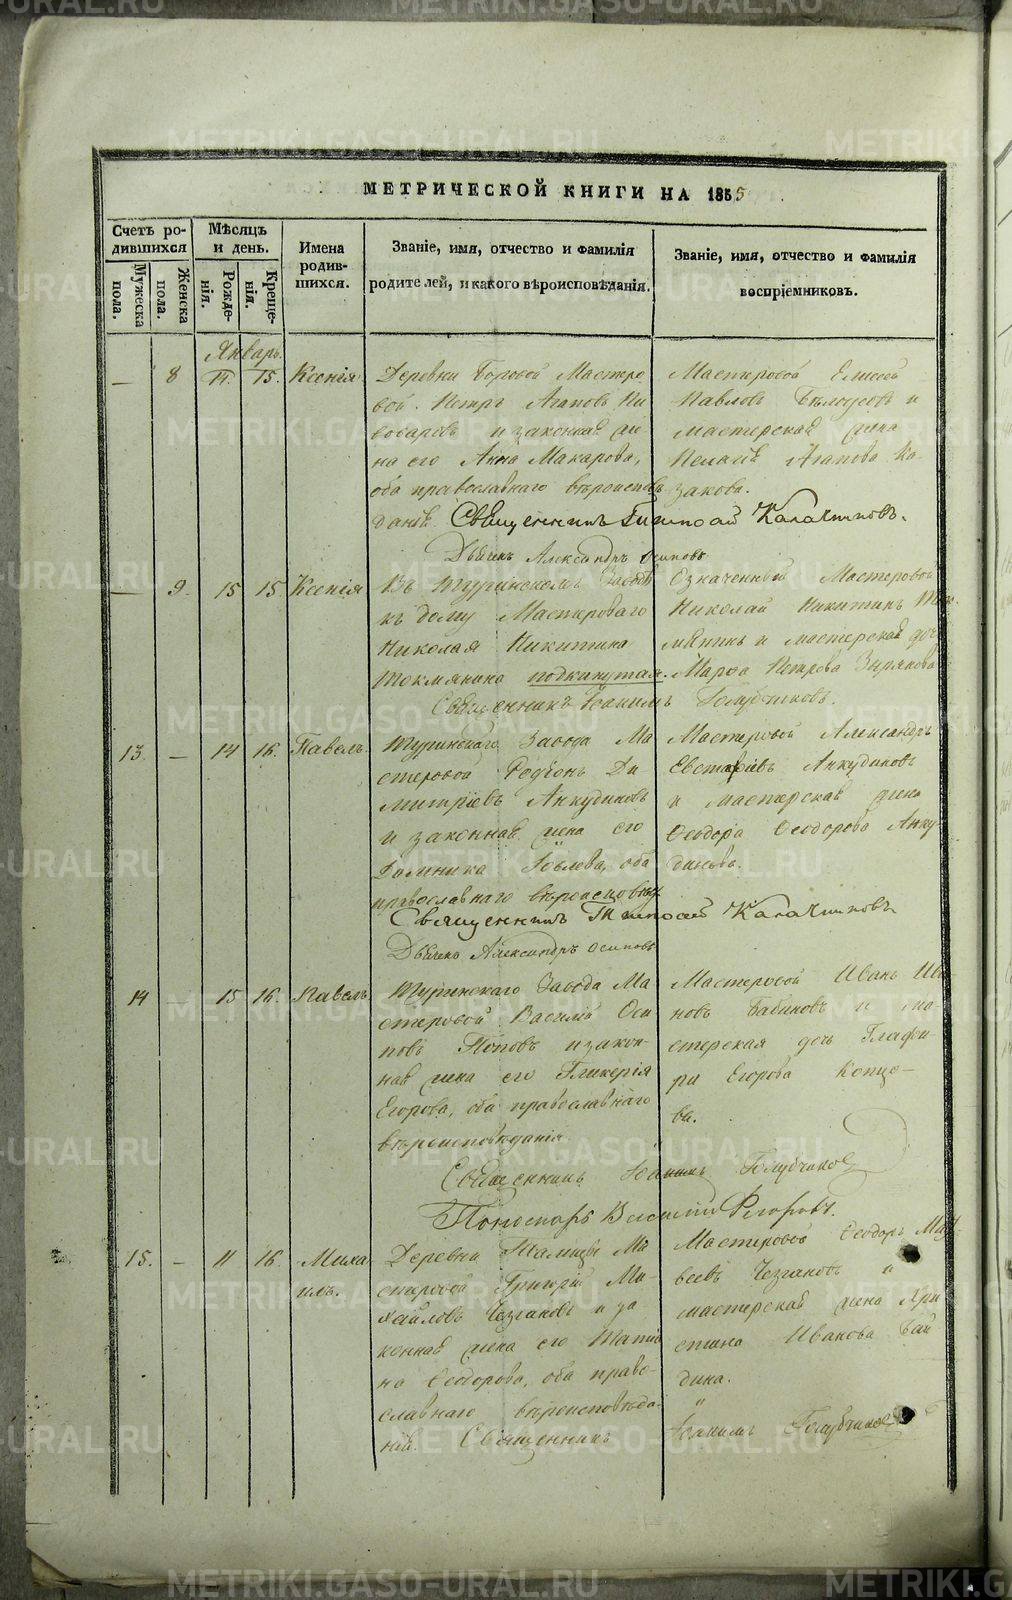 МЕТРИЧЕСКОЙ КНИГИ НА 1855
Счетъ ро-
дившихся
Мѣсяцъ
и день.
Имена
родив-
шихся.
Званіе, имя, отчество и фамилія
родителей, и какого вѣроисповѣданія.
Званіе, имя, отчество и фамилія
воспріемниковъ.
Мужеска
пола.
Женска
пола.
Рожде-
нія.
Креще-
нія.
Январь
— 8 11. 15. Ксенія
Деревни Боровой Мастеро
вой Петръ Агаповъ Пи
воваровъ и законная же
на его Анна Макарова,
оба православнаго вѣроисповѣ
данія. Священникъ Тимофей Калачниковъ.
Дьячекъ Александръ Осиповъ
Мастеровой Елисей
Павловъ Бѣлоусовъ и
мастерская жена
Пелагія Агапова Ка
закова.
— 9. 15 15. Ксенія
Въ Туринскомъ Заводѣ
къ дому Мастероваго
Николая Никитина
Токмянина подкинутая.
Священникъ Іоакимъ Голубчиковъ.
Означенный Мастеровой
Николай Никитинъ Ток
мянинъ и мастерская дочь
Марфа Петрова Зырянова
13. — 14 16. Павелъ.
Туринскаго Завода Ма
стеровой Родіонъ Ди
митріевъ Анкудиновъ
и законная жена его
Домника Іовлева, оба
православнаго вѣроисповѣд
Священникъ Тимофей Калачниковъ
Дьячекъ Александръ Осиповъ
Мастеровой Александръ
Евстафіевъ Анкудиновъ
и Мастерская жена
Ѳеодора Ѳеодорова Анку
динова.
14 — 15 16. Павелъ
Туринскаго Завода Ма
стеровой Василій Оси
повъ Поповъ и закон-
ная жена его Гликерія
Егорова, оба православнаго
вѣроисповѣданія
Священникъ Іоакимъ Голубчиковъ
Пономарь Василій Флоровъ.
Мастеровой Иванъ Ива
новъ Бабиновъ и ма-
стерская дочь Глафи
ра Егорова Копце-
ва.
15. — 11 16. Миха
илъ.
Деревни Талицы Ма
стеровой Григорій Ми-
хайловъ Чезгановъ и за
конная жена его Татія
на Ѳеодорова, оба право-
славнаго вѣроисповѣда-
нія. Священникъ Іоакимъ Голубчиковъ
Мастеровой Ѳеодоръ Мат-
веевъ Чезгановъ и
мастерская жена Хри
стина Иванова Бай
дина.